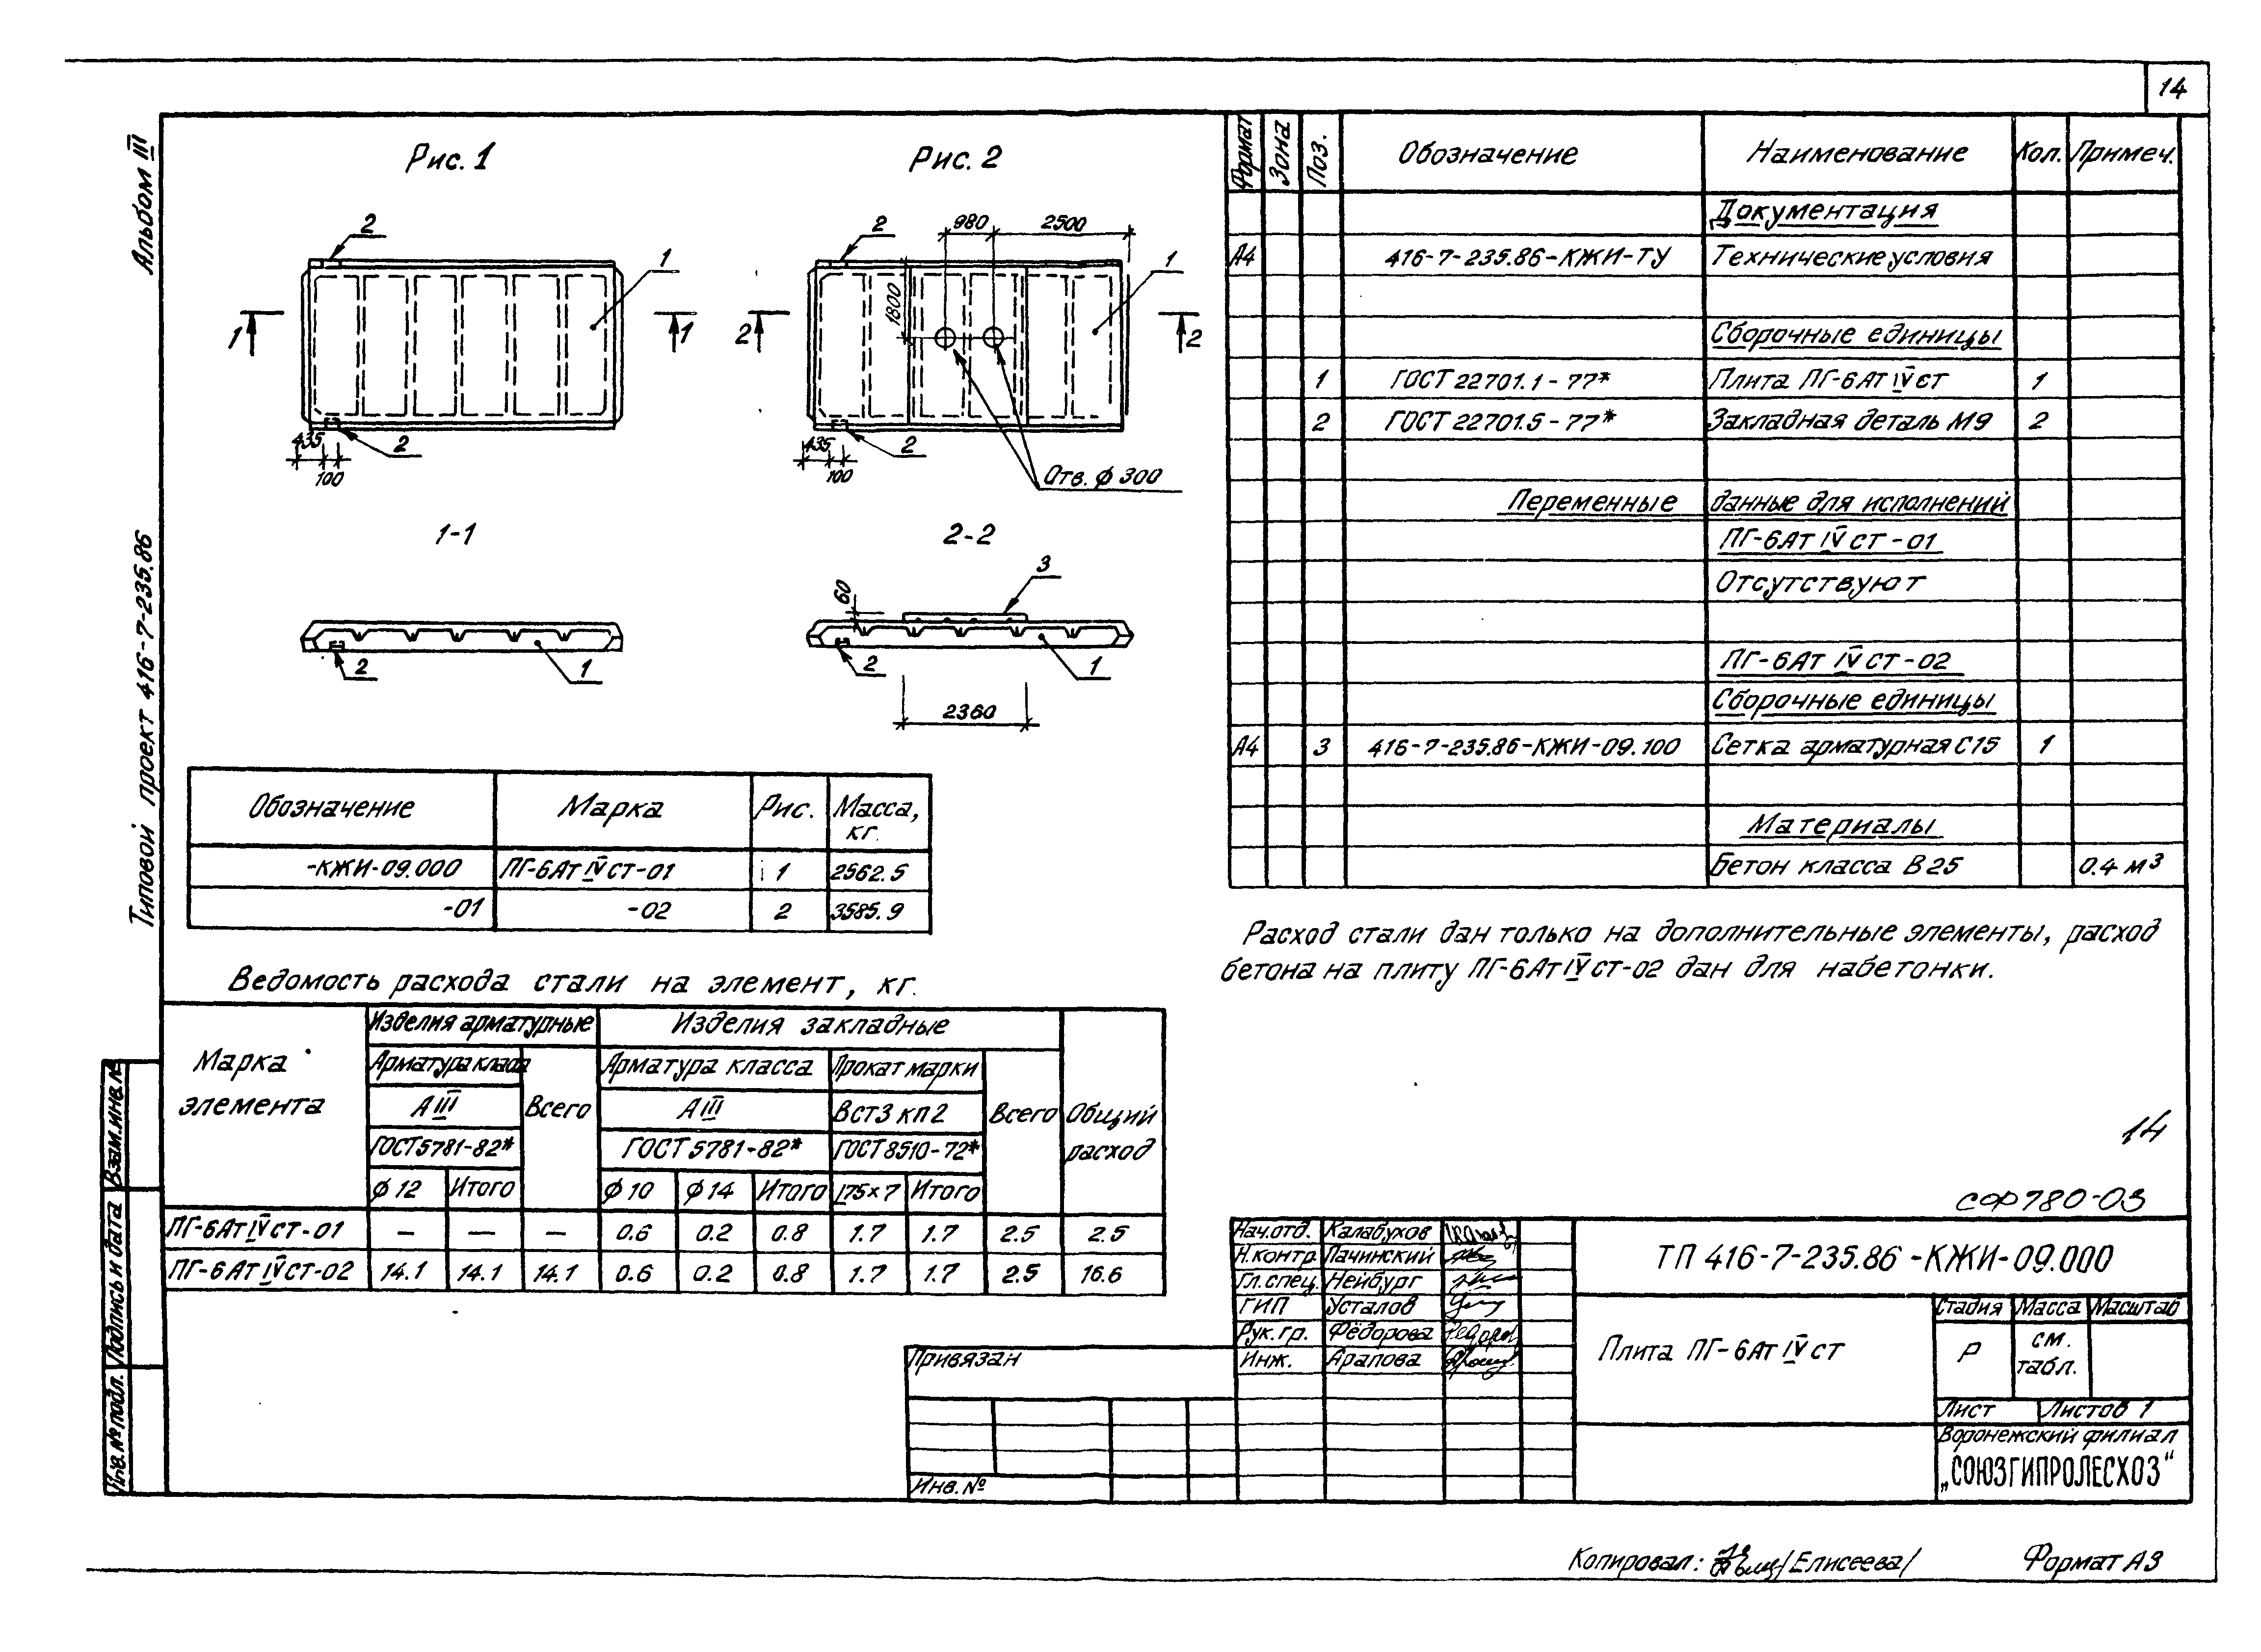 14
Альбом III
Типовой проект 416-7-235.86
Взам.инв.№
Подпись и дата
Инв.№ подл.
Рис. 1
2
1
1
1
435
100
2
Рис. 2
980
2500
2
1
1800
2
2
435
100
2
Отв. ϕ 300
1-1
2
1
2-2
60
3
2
1
2360
Обозначение Марка Рис. Масса, кг.
-КЖИ-09.000 ПГ-6Ат IV СТ-01 1 2562.5
-01 -02 2 3585.9
Ведомость расхода стали на элемент, кг.
Марка элемента
Изделия арматурные Изделия закладные
Арматура класса Всего Арматура класса Прокат марки Всего Общий расход
А III А III Вст3 кп2
ГОСТ 5781-82* ГОСТ 5781-82* ГОСТ 8510-72*
ϕ 12 Итого ϕ 10 ϕ 14 Итого 175×7 Итого
ПГ-6Ат IV СТ-01 — — — 0.6 0.2 0.8 1.7 1.7 2.5 2.5
ПГ-6Ат IV СТ-02 14.1 14.1 14.1 0.6 0.2 0.8 1.7 1.7 2.5 16.6
Формат Зона Поз. Обозначение Наименование Кол. Примеч.
Документация
А4 416-7-235.86-КЖИ-ТУ Технические условия
Сборочные единицы
1 ГОСТ 22701.1-77* Плита ПГ-6Ат IV ст 1
2 ГОСТ 22701.5-77* Закладная деталь М9 2
Переменные данные для исполнений
ПГ-6Ат IV СТ-01
Отсутствуют
ПГ-6Ат IV СТ-02
Сборочные единицы
А4 3 416-7-235.86-КЖИ-09.100 Сетка арматурная С15 1
Материалы
Бетон класса В 25 0.4 м³
Расход стали дан только на дополнительные элементы, расход
бетона на плиту ПГ-6Ат IV СТ-02 дан для набетонки.
14
СФ780-03
Нач.отд. Калабухов
Н.контр Пачинский
Гл.спец. Нейбург
ГИП Усталов
Рук.гр. Фёдорова
Инж. Арапова
ТП 416-7-235.86-КЖИ-09.000
Плита ПГ-6Ат IV ст
Стадия Масса Масштаб
Р см. табл.
Лист Листов 1
Воронежский филиал
„СОЮЗГИПРОЛЕСХОЗ"
Привязан
Инв. №
Копировал: /Елисеева/
Формат А3